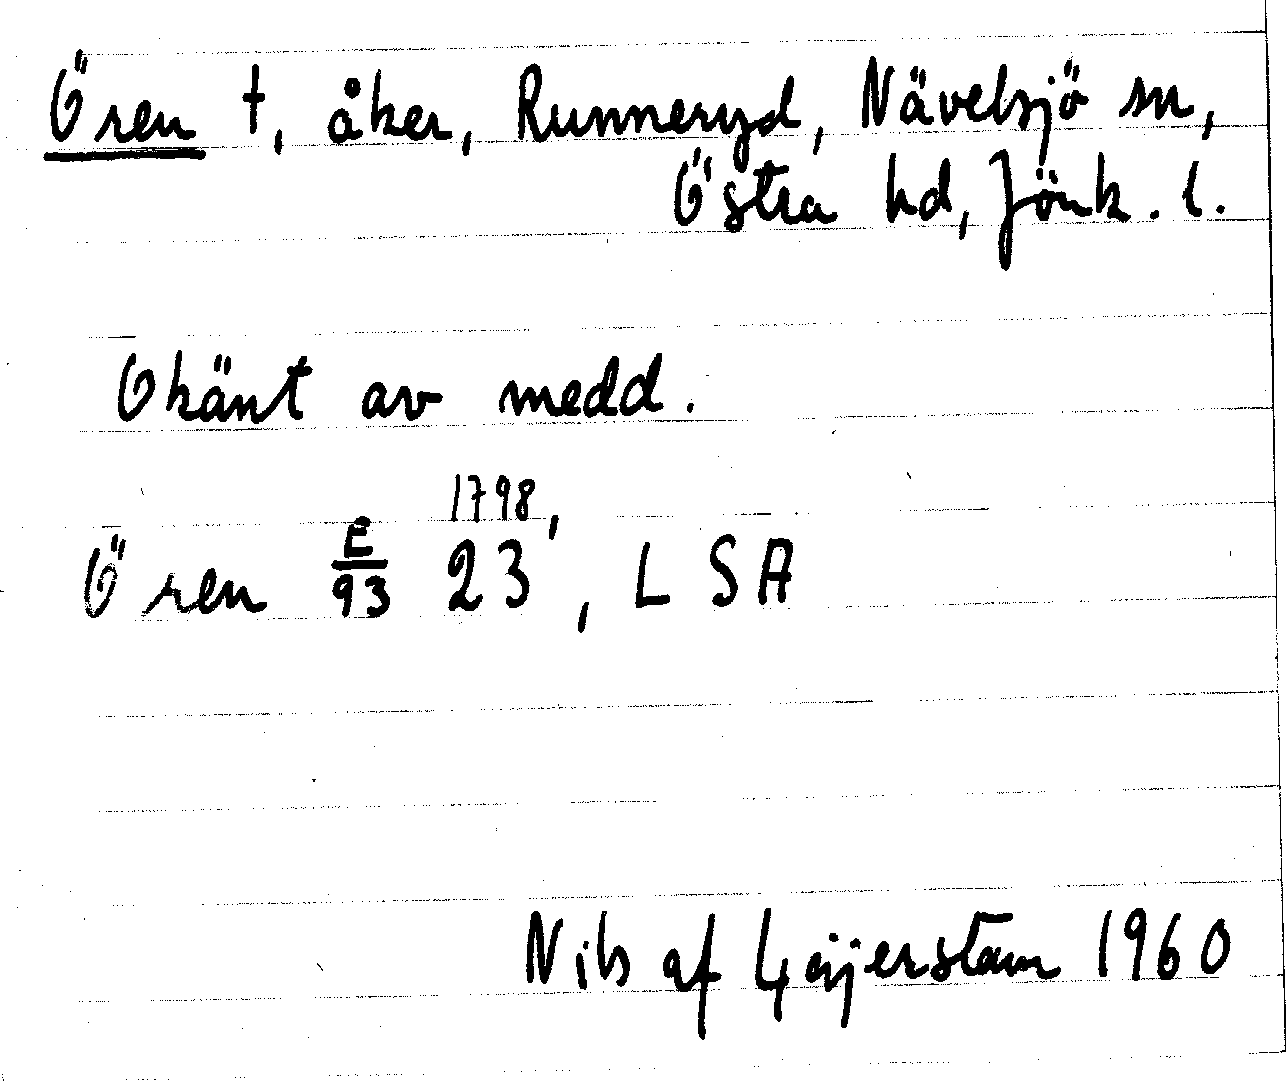 Ören †, åker, Runneryd, Nävelsjö sn,
Östra hd, Jönk. l.
Okänt av medd.
Ören E/93 23 1798, , LSA
Nils af Geijerstam 1960